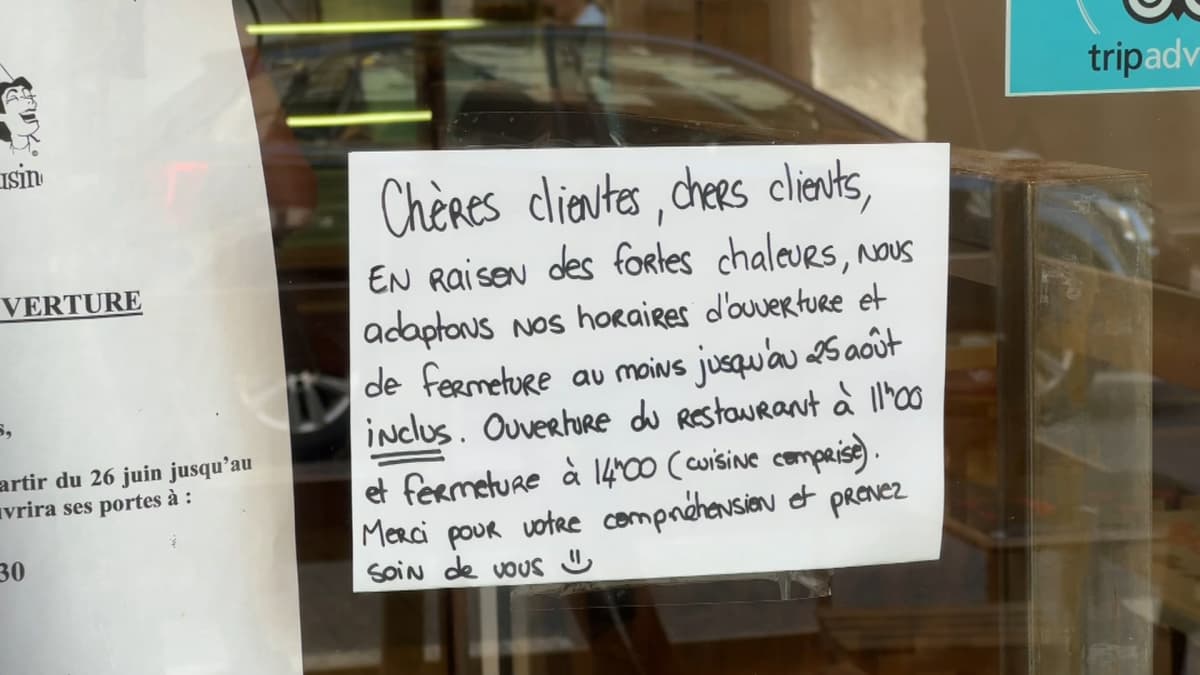 usin
VERTURE
s,
artir du 26 juin jusqu'au
uvrira ses portes à :
30
Chères clientes, chers clients,
En raison des fortes chaleurs, nous
adaptons nos horaires d'ouverture et
de fermeture au moins jusqu'au 25 août
inclus. Ouverture du restaurant à 11h00
et fermeture à 14h00 (cuisine comprise).
Merci pour votre compréhension et prenez
soin de vous
tripadv